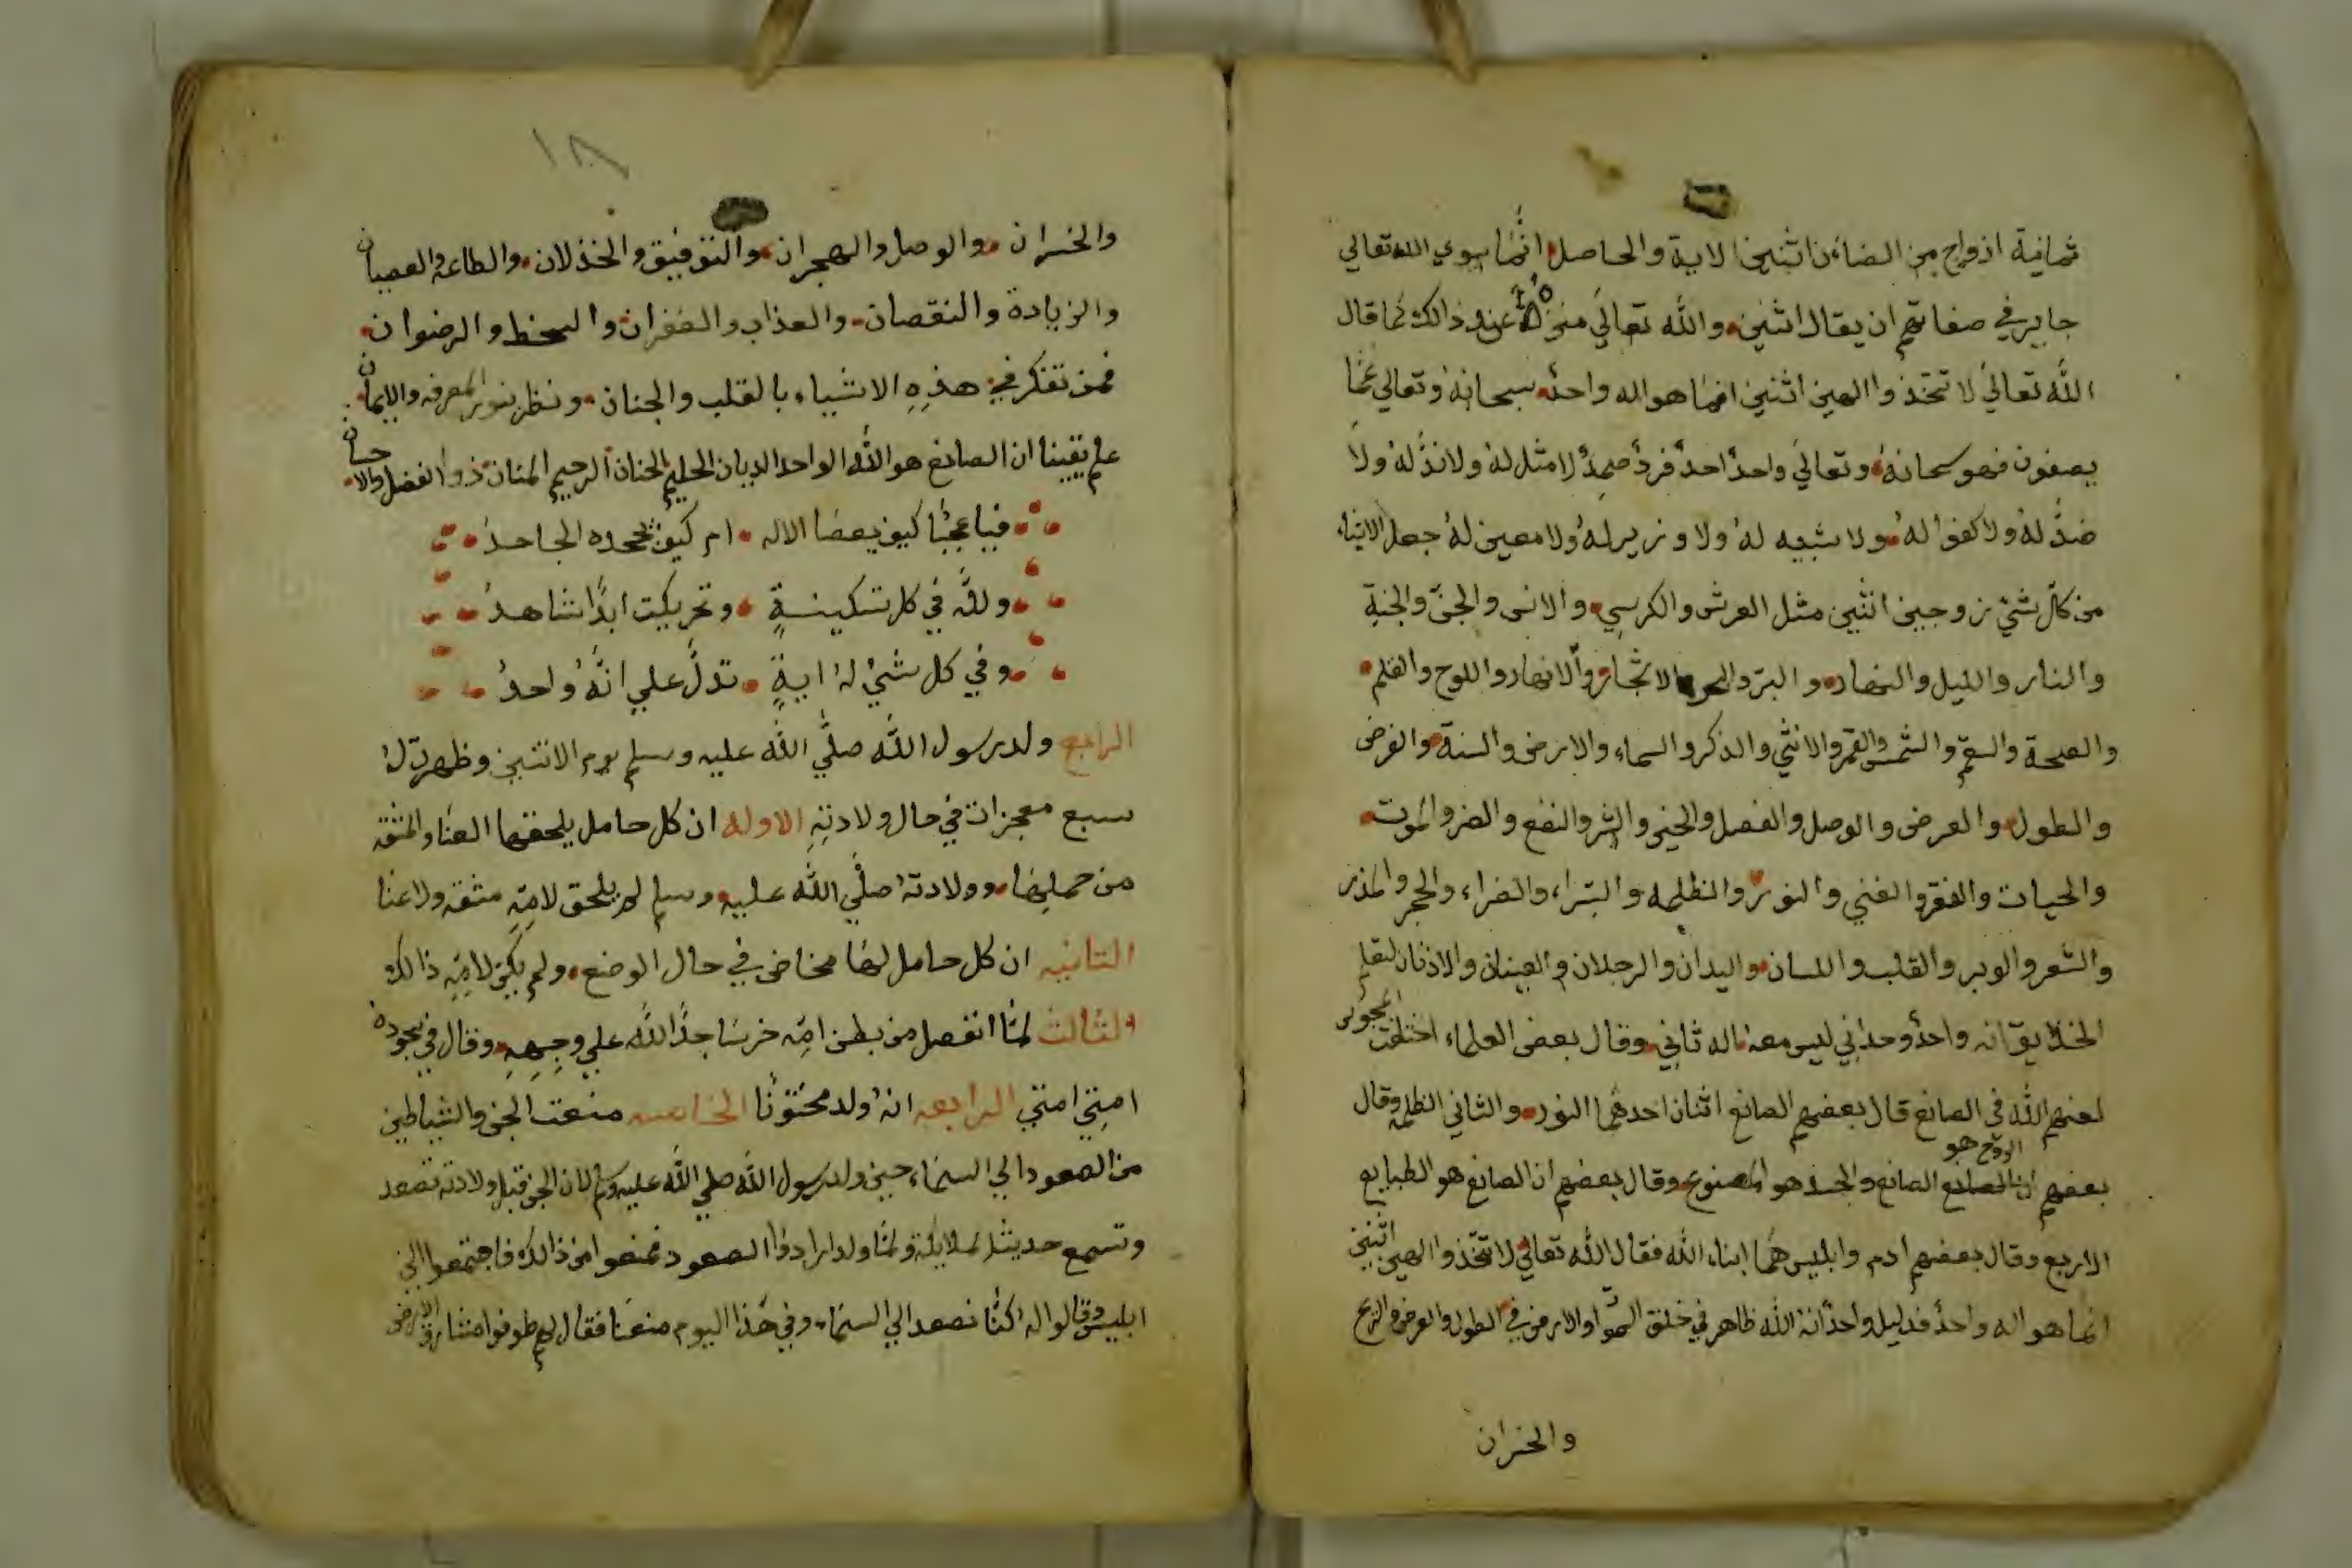 ثمانية ازواج من الضاءن اثنين الاية والحاصل انما سوي الله تعالي
جايز في صفاتهم ان يقال اثنين والله تعالي منزه عند ذالك كما قال
الله تعالي لا تتخذوا الهين اثنين انما هو اله واحد سبحانه وتعالي عما
يصفون فهو سبحانه وتعالي واحد احد فرد صمد لا مثل له ولا ند له ولا
ضد له ولا كفوا له ولا شبيه له ولا وزير له ولا معين له جعل الاشياء
من كل شيء زوجين اثنين مثل العرش والكرسي والانس والجن والجنة
والنار والليل والنهار والبر والبحر الاشجار والانهار واللوح والقلم
والصحة والسقم والشمس والقمر والانثي والذكر والسماء والارض والسنة والفرض
والطول والعرض والوصل والفصل والخير والشر والنفع والضر والموت
والحيات والفقر والغني والنور والظلمه والسراء والضراء والحجر والمدر
والشعر والوبر والقلب واللسان واليدان والرجلان والعينان والاذنان لتعلم
الخلايق انه واحد وحداني ليس معه اله ثاني وقال بعض العلماء اختلفت المجوس
لعنهم الله في الصانع قال بعضهم الصانع اثنان احدهما النور والثاني الظلمه وقال
بعضهم ان الروح هو الصانع والجسد هو المصنوع وقال بعضهم ان الصانع هو الطبايع
الاربع وقال بعضهم ادم وابليس هما ابناء الله فقال الله تعالي لا تتخذوا الهين اثنين
انما هو اله واحد فدليل واحد انه الله ظاهر في خلق السموات والارض في الطول والعرض والربح
والخسران
١٨
والخسران والوصل والهجران والتوفيق والخذلان والطاعة والعصيان
والزيادة والنقصان والعذاب والغفران والسخط والرضوان
فمن تفكر في هذه الاشياء بالقلب والجنان ونظر بنور المعرفه والايمان
علم يقينا ان الصانع هو الله الواحد الديان الحليم الحنان الرحيم المنان ذو الفضل والاحسان
فيا عجبا كيف يعصا الاله ام كيف يجحده الجاحد
ولله في كل تسكينة وتحريكت ابدا شاهد
وفي كل شيء له اية تدل علي انه واحد
الرابع ولد رسول الله صلي الله عليه وسلم يوم الاثنين وظهرت له
سبع معجزات في حال ولادته الاوله ان كل حامل يلحقها العنا والمشقه
من حملها وولادته صلي الله عليه وسلم لم يلحق لامه مشقه ولا عنا
الثانيه ان كل حامل لها مخاض في حال الوضع ولم يكن لامه ذالك
الثالث لما انفصل من بطن امه خر ساجدا لله علي وجهه وقال في سجوده
امتي امتي الرابعه انه ولد مختونا الخامسه منعت الجن والشياطين
من الصعود الي السماء حين ولد رسول الله صلي الله عليه وسلم لان الجن قبل ولادته تصعد
وتسمع حديث الملايكة ولما ولد ارادوا الصعود فمنعوا من ذالك فاجتمعوا الي
ابليس وقالوا له كنا نصعد الي السماء وفي هذا اليوم منعنا فقال لهم طوفوا مشارق الارض